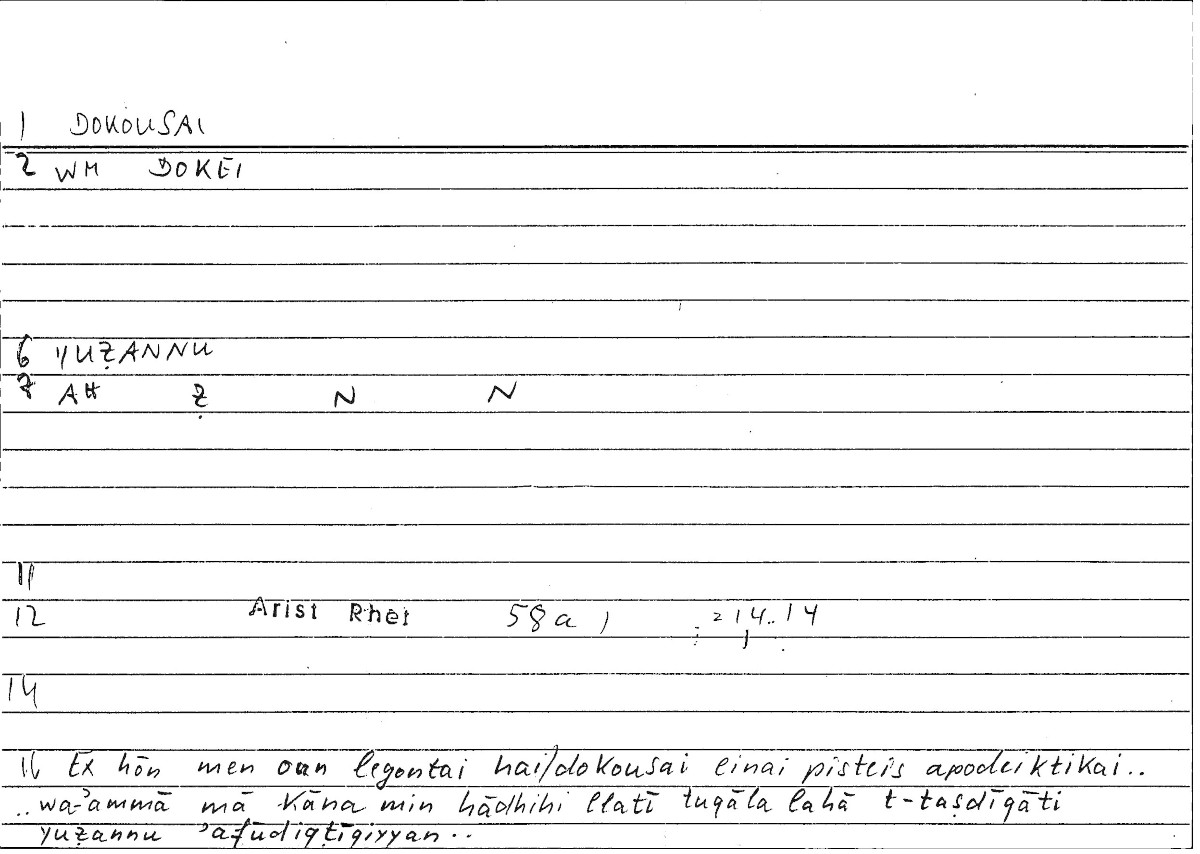 1 DOKOUSAI
2 WM DOKEI
6 YUẒANNU
7 AH Ẓ N N
11
12 Arist Rhet 58a 1 = 14..14
14
16 Ex hōn men oun legontai hai/dokousai einai pisteis apodeiktikai..
..wa-ʾammā mā kāna min hādhihi llatī tuqāla lahā t-taṣdīqāti
yuẓannu ʾafūdiqṭīqiyyan..